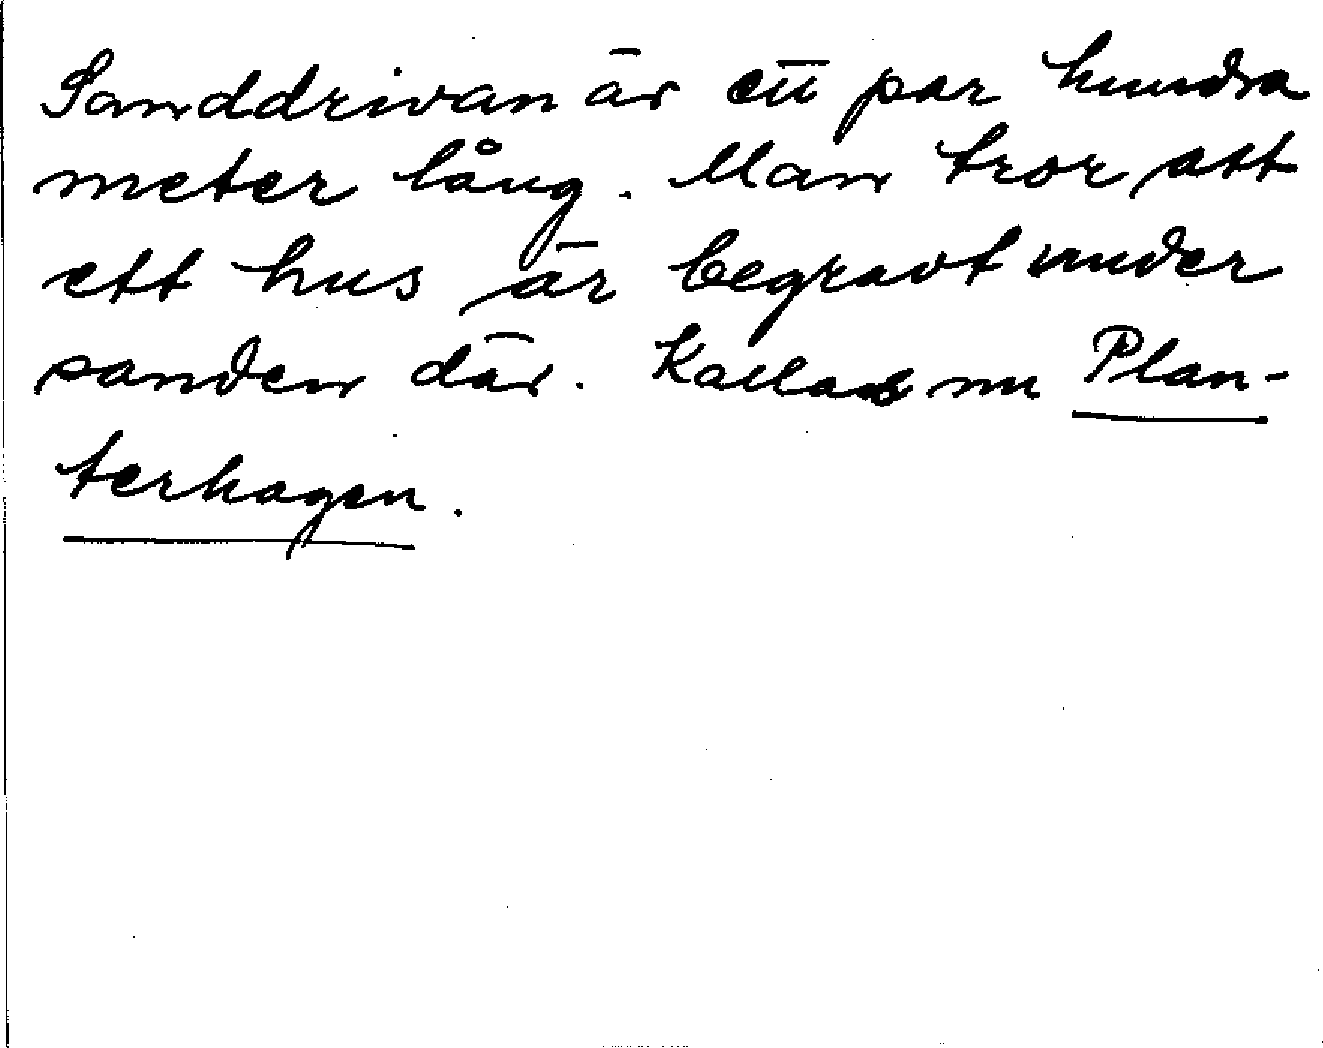 Sanddrivan är ett par hundra
meter lång. Man tror att
ett hus är begravt under
sanden där. Kallas nu Plan-
terhagen.